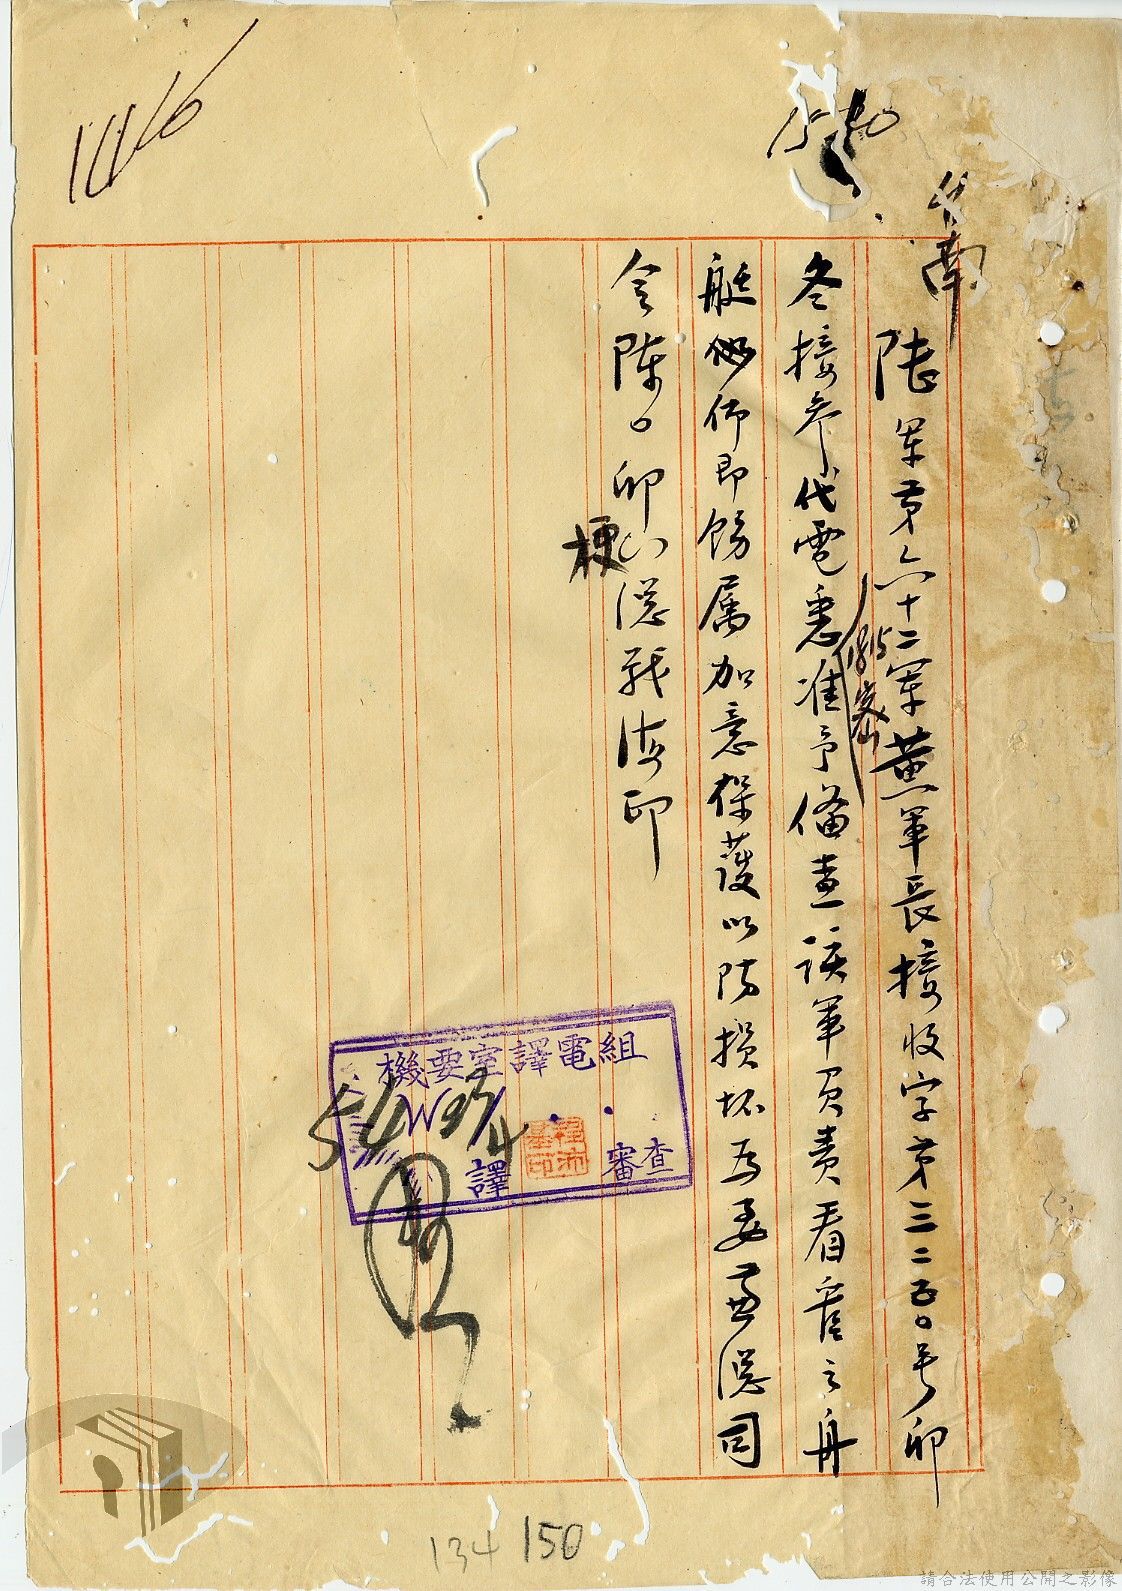 台南
陸軍第六十二軍黃軍長接收字第三二五〇號卯
密
冬接參代電悉准予備查該軍負責看管之舟
艇似仰即飭屬加意保護以防損壞為要兼總司
令陳〇卯
梗
總戰海印
機要室譯電組
譯
審查
134 150
請合法使用公開之影像